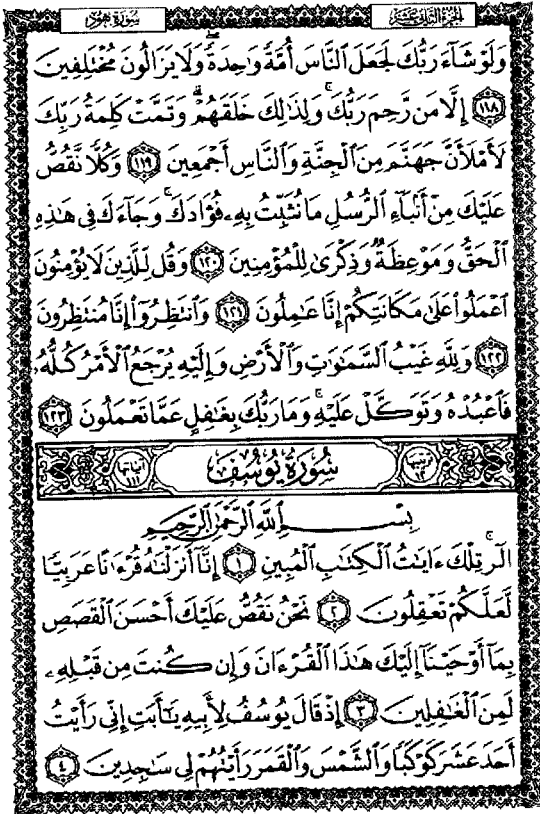 سُورَةُ هُودٍ
الجُزْءُ الثَّانِي عَشَرَ
وَلَوْ شَآءَ رَبُّكَ لَجَعَلَ ٱلنَّاسَ أُمَّةً وَٰحِدَةً ۖ وَلَا يَزَالُونَ مُخْتَلِفِينَ
١١٨ إِلَّا مَن رَّحِمَ رَبُّكَ ۚ وَلِذَٰلِكَ خَلَقَهُمْ ۗ وَتَمَّتْ كَلِمَةُ رَبِّكَ
لَأَمْلَأَنَّ جَهَنَّمَ مِنَ ٱلْجِنَّةِ وَٱلنَّاسِ أَجْمَعِينَ ١١٩ وَكُلًّا نَّقُصُّ
عَلَيْكَ مِنْ أَنۢبَآءِ ٱلرُّسُلِ مَا نُثَبِّتُ بِهِۦ فُؤَادَكَ ۚ وَجَآءَكَ فِى هَٰذِهِ
ٱلْحَقُّ وَمَوْعِظَةٌ وَذِكْرَىٰ لِلْمُؤْمِنِينَ ١٢٠ وَقُل لِّلَّذِينَ لَا يُؤْمِنُونَ
ٱعْمَلُوا۟ عَلَىٰ مَكَانَتِكُمْ إِنَّا عَٰمِلُونَ ١٢١ وَٱنتَظِرُوٓا۟ إِنَّا مُنتَظِرُونَ
١٢٢ وَلِلَّهِ غَيْبُ ٱلسَّمَٰوَٰتِ وَٱلْأَرْضِ وَإِلَيْهِ يُرْجَعُ ٱلْأَمْرُ كُلُّهُۥ
فَٱعْبُدْهُ وَتَوَكَّلْ عَلَيْهِ ۚ وَمَا رَبُّكَ بِغَٰفِلٍ عَمَّا تَعْمَلُونَ ١٢٣
سُورَةُ يُوسُفَ
آياتها ١١١
بِسْمِ ٱللَّهِ ٱلرَّحْمَٰنِ ٱلرَّحِيمِ
الٓر ۚ تِلْكَ ءَايَٰتُ ٱلْكِتَٰبِ ٱلْمُبِينِ ١ إِنَّآ أَنزَلْنَٰهُ قُرْءَٰنًا عَرَبِيًّا
لَّعَلَّكُمْ تَعْقِلُونَ ٢ نَحْنُ نَقُصُّ عَلَيْكَ أَحْسَنَ ٱلْقَصَصِ
بِمَآ أَوْحَيْنَآ إِلَيْكَ هَٰذَا ٱلْقُرْءَانَ وَإِن كُنتَ مِن قَبْلِهِۦ
لَمِنَ ٱلْغَٰفِلِينَ ٣ إِذْ قَالَ يُوسُفُ لِأَبِيهِ يَٰٓأَبَتِ إِنِّى رَأَيْتُ
أَحَدَ عَشَرَ كَوْكَبًا وَٱلشَّمْسَ وَٱلْقَمَرَ رَأَيْتُهُمْ لِى سَٰجِدِينَ ٤